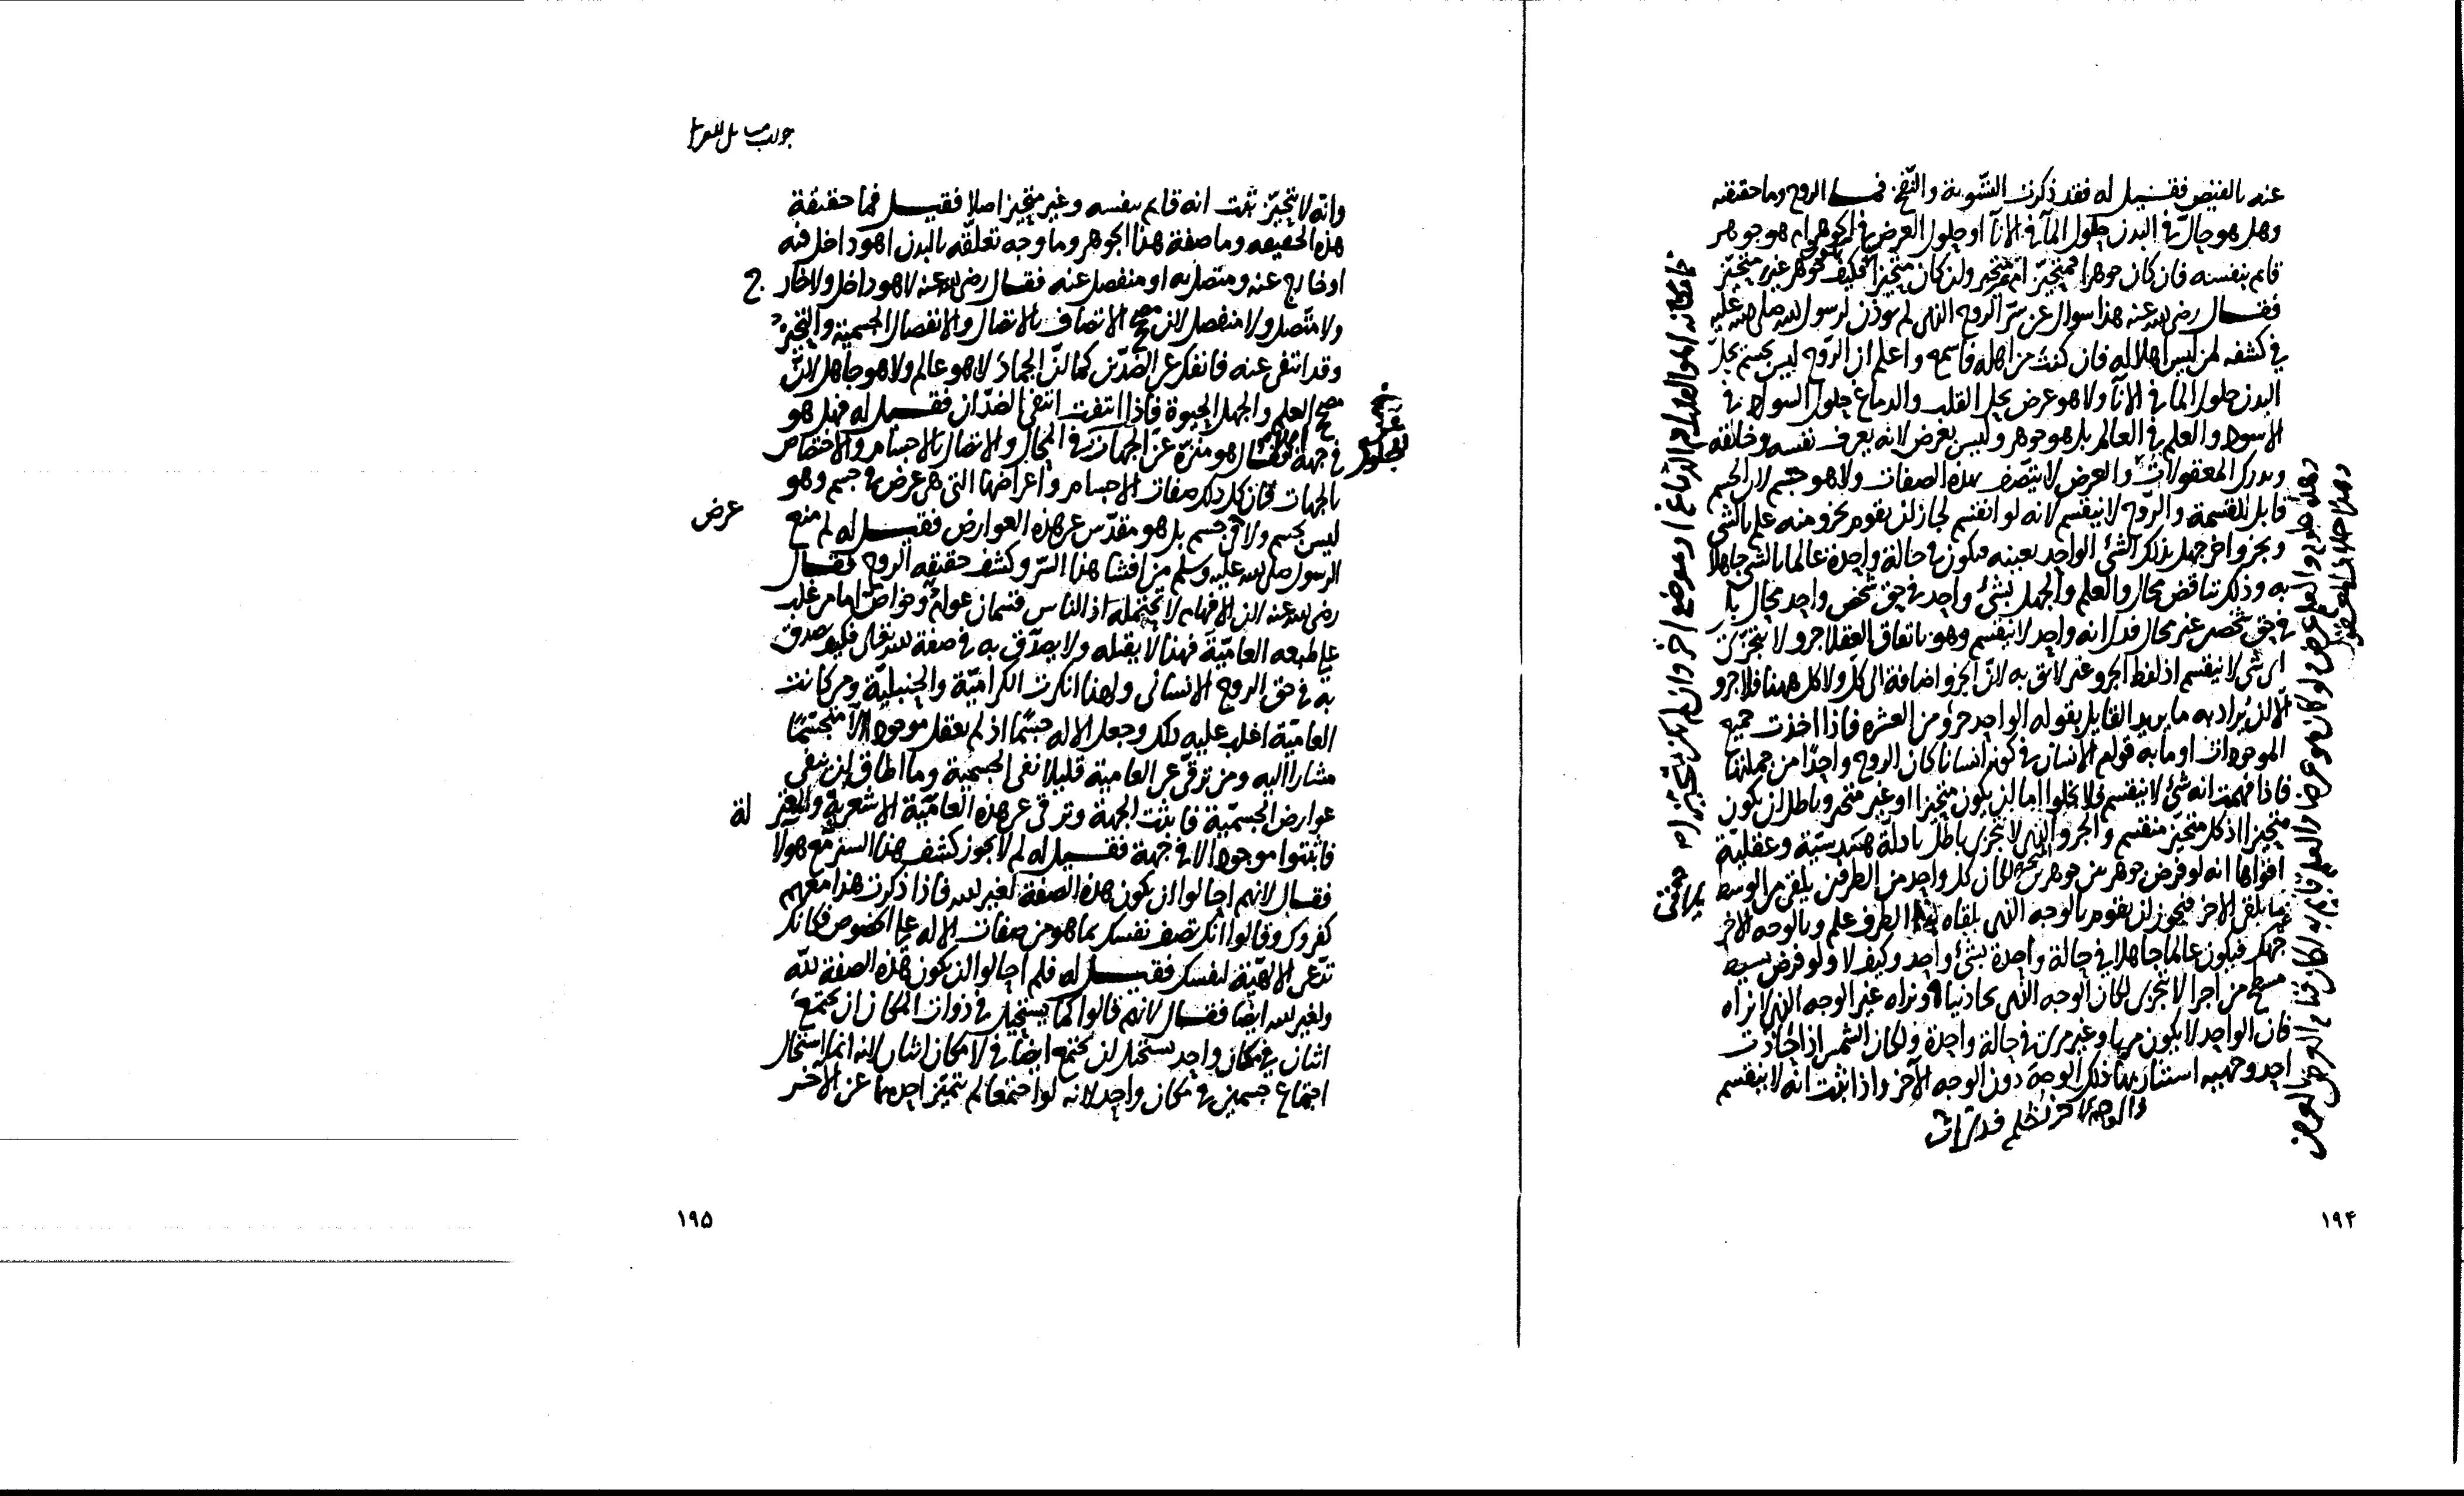 عنه بالفيض فقيل له فقد ذكرت التسوية والنفخ فما الروح وما حقيقته
وهل هو حال في البدن حلول المآ في الانآ او حلول العرض في الجوهر ام هو جوهر
قايم بنفسه فان كان جوهرا فمتحيز ام غير متحيز وان كان متحيزا فكيف جوهر غير متحيز
فقال رضى الله عنه هذا سوال عن سر الروح الذى لم يوذن لرسول الله صلى الله عليه
في كشفه لمن ليس اهلا له فان كنت من اهله فاسمع واعلم ان الروح ليس بجسم يحل
البدن حلول المآ في الانآ ولا هو عرض يحل القلب والدماغ حلول السواد في
الاسود والعلم في العالم بل هو جوهر وليس بعرض لانه يعرف نفسه وخالقه
ويدرك المعقولات والعرض لا يتصف بهذه الصفات ولا هو جسم لان الجسم
قابل للقسمة والروح لا ينقسم لانه لو انقسم لجاز ان يقوم بجزو منه علم بالشى
وبجزو اخر جهل بذلك الشئ الواحد بعينه فيكون في حالة واحدة عالما بالشى جاهلا
به وذلك تناقض محال والعلم والجهل بشئ واحد في حق شخص واحد محال
في حق شخصين غير محال فدل انه واحد لا ينقسم وهو باتفاق العقلا جزو لا يتجزى
اى شى لا ينقسم اذ لفظ الجزو غير لايق به لان الجزو اضافة الى كل ولا كل ههنا فلا جزو
الا ان يراد به ما يريد القايل بقوله الواحد جزؤ من العشره فاذا اخذت جميع
الموجودات او ما به قوام الانسان في كونه انسانا كان الروح واحدا من جملتها
فاذا فهمت انه شئ لا ينقسم فلا يخلوا اما ان يكون متحيزا او غير متحيز وباطل ان يكون
متحيزا اذ كل متحيز منقسم والجزو الذى لا يتجزى باطل بادلة هندسية وعقلية
اقواها انه لو فرض جوهر بين جوهرين لكان كل واحد من الطرفين يلقى من الوسط
غير ما يلقى الاخر فيجوز ان يقوم بالوجه الذى يلقاه هذا الطرف علم وبالوجه الاخر
جهل فيكون عالما جاهلا في حالة واحدة بشئ واحد وكيف لا ولو فرض بسيط
مسطح من اجزا لا تتجزى لكان الوجه الذى يحاذينا ونراه غير الوجه الذى لا نراه
فان الواحد لا يكون مرييا وغير مرى في حالة واحدة ولكان الشمس اذا حاذت
احد وجهيه استنار بها ذلك الوجه دون الوجه الآخر واذا ثبت انه لا ينقسم
١٩۴
وانه لا يتحيز ثبت انه قايم بنفسه وغير متحيز اصلا فقيل فما حقيقة
هذه الحقيقه وما صفة هذا الجوهر وما وجه تعلقه بالبدن اهو داخل فيه
او خارج عنه ومتصل به او منفصل عنه فقال رضى الله عنه لا هو داخل ولا خار ج
ولا متصل ولا منفصل لان مصحح الاتصاف بالاتصال والانفصال الجسمية والتحيز
وقد انتفى عنه فانفك عن الضدين كما ان الجماد لا هو عالم ولا هو جاهل لان
مصحح العلم والجهل الحيوة فاذا انتفت انتفى الضدان فقيل له فهل هو
في جهة فقال هو منزه عن الجهات في المحال والاتصال بالاجسام والاختصاص
بالجهات فان كل ذلك صفات الاجسام واعراضها التى هى عرض في جسم وهو
عرض
ليس بجسم ولا في جسم بل هو مقدس عن هذه العوارض فقيل له لم منع
الرسول صلى الله عليه وسلم من افشا هذا السر وكشف حقيقه الروح فقال
رضى الله عنه لان الافهام لا تحتمله اذ الناس قسمان عوام وخواص اما من غلب
على طبعه العامية فهذا لا يقبله ولا يصدق به في صفة الله تعالى فكيف يصدق
به في حق الروح الانسانى ولهذا انكرت الكرامية والحنبلية ومن كانت
العامية اغلب عليه ذلك وجعل الاله جسما اذ لم يعقل موجودا الا متجسما
مشارا اليه ومن ترقى عن العامية قليلا نفى الجسمية وما اطاق ان ينفى
عوارض الجسمية فاثبت الجهة وترقى عن هذه العامية الاشعرية والمعتز لة
فاثبتوا موجودا لا في جهة فقيل له لم لا يجوز كشف هذا السر مع هولآ
فقال لانهم احالوا ان يكون هذه الصفة لغير الله فاذا ذكرت هذا معهم
كفروك وقالوا انك تصف نفسك بما هو من صفات الاله على الخصوص فكانك
تدعى الالهية لنفسك فقيل له فلم احالوا ان يكون هذه الصفة لله
ولغير الله ايضا فقال لانهم قالوا كما يستحيل في ذوات المكان ان يجتمع
اثنان في مكان واحد يستحيل ان يجتمع ايضا في لا مكان اثنان لانه انما استحال
اجتماع جسمين في مكان واحد لانه لو اجتمعا لم يتميز احدهما عن الآخر
١٩۵